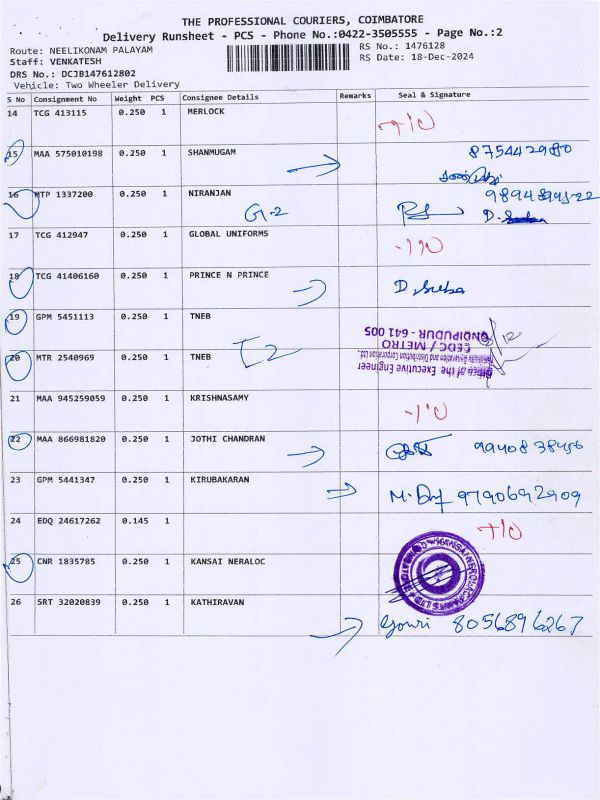 THE PROFESSIONAL COURIERS, COIMBATORE
Delivery Runsheet - PCS - Phone No.:0422-3505555 - Page No.:2
Route: NEELIKONAM PALAYAM
RS No.: 1476128
Staff: VENKATESH
RS Date: 18-Dec-2024
DRS No.: DCJB147612802
Vehicle: Two Wheeler Delivery
S No Consignment No Weight PCS Consignee Details Remarks Seal & Signature
14 TCG 413115 0.250 1 MERLOCK
15 MAA 575010198 0.250 1 SHANMUGAM 8754442980
16 MTP 1337200 0.250 1 NIRANJAN
G-2 D. Suba
17 TCG 412947 0.250 1 GLOBAL UNIFORMS
18 TCG 41406160 0.250 1 PRINCE N PRINCE D. Suba
19 GPM 5451113 0.250 1 TNEB
20 MTR 2540969 0.250 1 TNEB
Office of the Executive Engineer
Generation and Distribution Corporation Ltd.
CEDC / METRO
ONDIPUDUR - 641 005
21 MAA 945259059 0.250 1 KRISHNASAMY
22 MAA 866981820 0.250 1 JOTHI CHANDRAN 9940838456
23 GPM 5441347 0.250 1 KIRUBAKARAN 9790692909
24 EDQ 24617262 0.145 1
25 CNR 1835785 0.250 1 KANSAI NERALOC
26 SRT 32020839 0.250 1 KATHIRAVAN
Gowri 8056896267